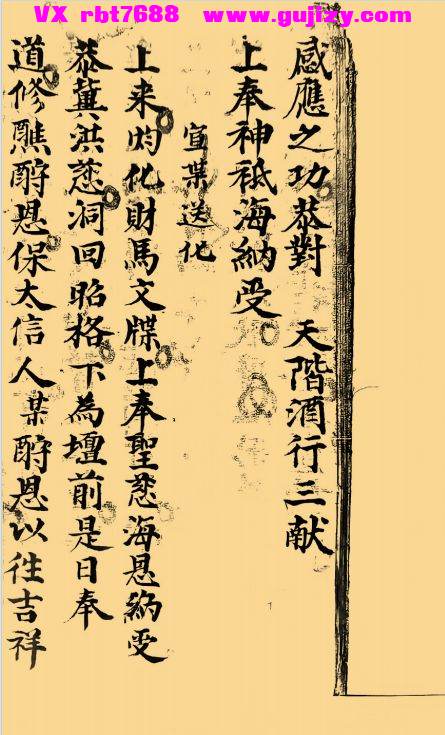 VX rbt7688 www.gujizy.com
感應之功恭對 天階酒行三献
上奉神祇海納受
宣某送化
上来灼化財馬文牒上奉聖慈海恩納受
恭冀洪慈洞回昭格下為壇前是日奉
道修醮酧恩保太信人某酧恩以往吉祥